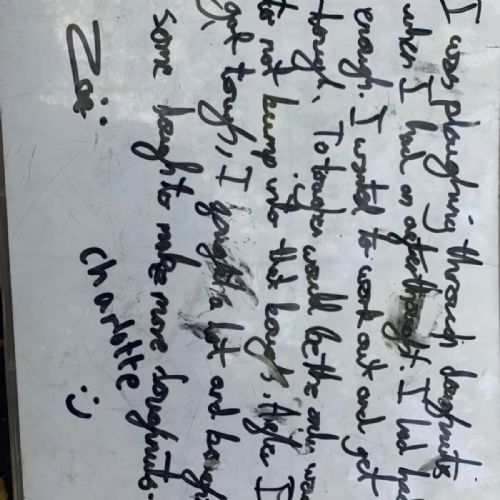 I was ploughing through doughnuts
when I had an afterthought. I had ha
enough. I wanted to work out and get
tough. To toughen would be the only wa
to not bump into that bough. After I
got tough, I fought a lot and bough
some dough to make more doughnuts.
Zoë charlotte :)